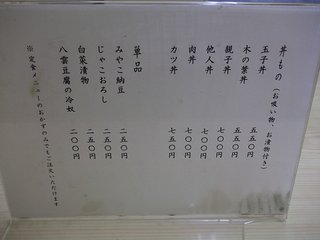 丼もの(お吸い物、お漬物付き)
玉子丼 五五〇円
木の葉丼 五五〇円
親子丼 七〇〇円
他人丼 七〇〇円
肉丼 七〇〇円
カツ丼 七五〇円
単品
みやこ納豆 二五〇円
じゃこおろし 二五〇円
白菜漬物 二五〇円
八雲豆腐の冷奴 二〇〇円
※定食メニューのおかずのみでもご注文いただけます